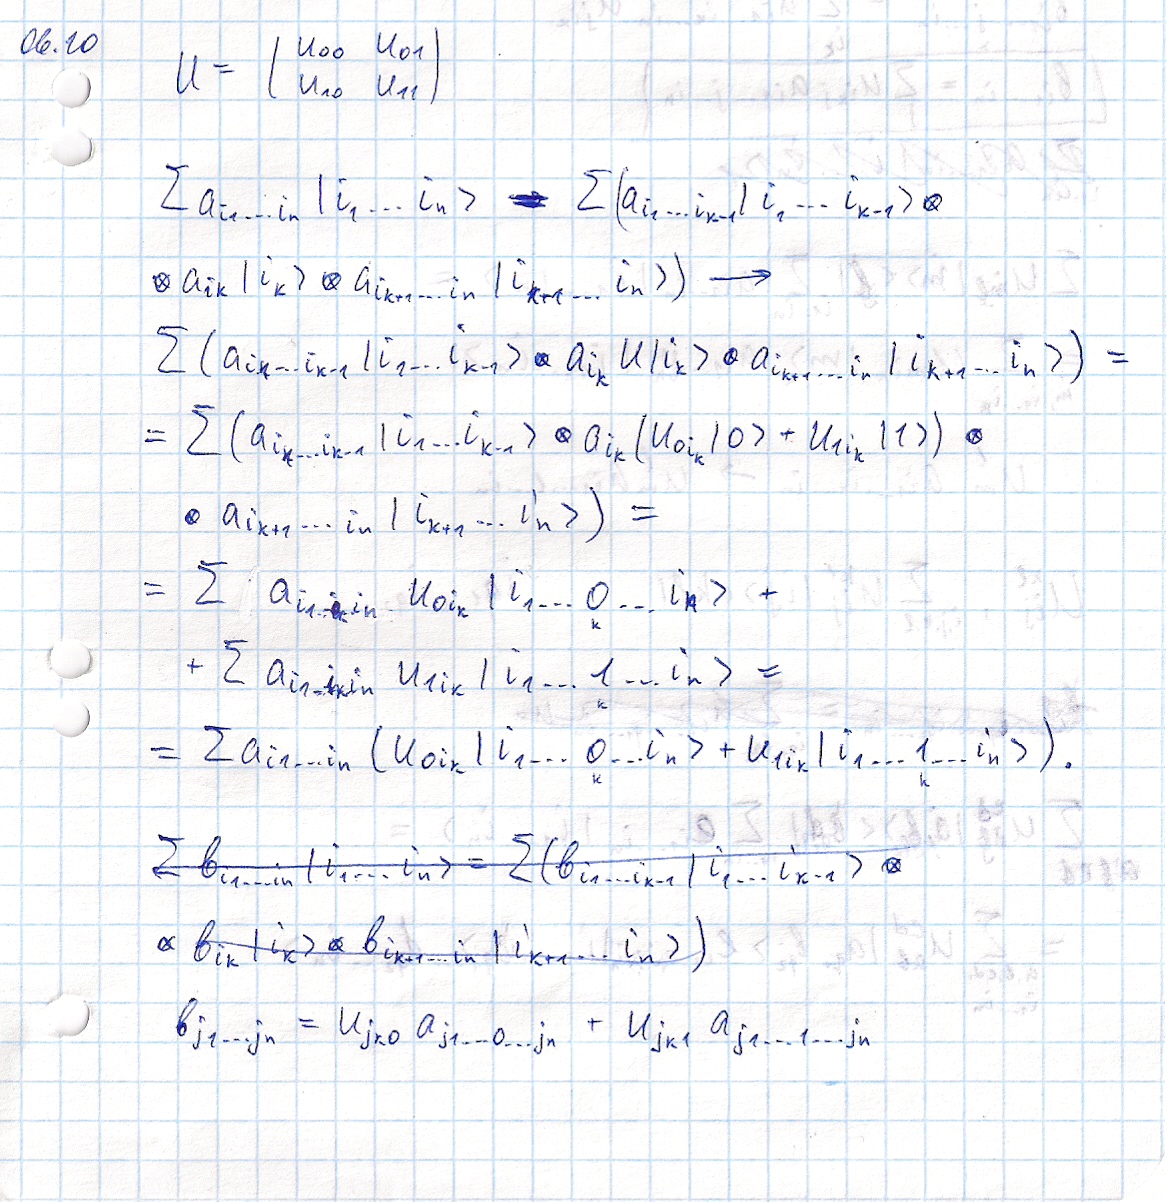 06.10
U = ( u₀₀ u₀₁
u₁₀ u₁₁ )
Σ a_{i₁...iₙ} |i₁...iₙ> = Σ(a_{i₁...i_{k-1}} |i₁...i_{k-1}> ⊗
⊗ a_{i_k} |i_k> ⊗ a_{i_{k+1}...iₙ} |i_{k+1}...iₙ>) →
Σ (a_{i₁...i_{k-1}} |i₁...i_{k-1}> ⊗ a_{i_k} U|i_k> ⊗ a_{i_{k+1}...iₙ} |i_{k+1}...iₙ>) =
= Σ (a_{i₁...i_{k-1}} |i₁...i_{k-1}> ⊗ a_{i_k} (u_{0i_k} |0> + u_{1i_k} |1>) ⊗
⊗ a_{i_{k+1}...iₙ} |i_{k+1}...iₙ>) =
= Σ a_{i₁...i_k...iₙ} u_{0i_k} |i₁...0_k...iₙ> +
+ Σ a_{i₁...i_k...iₙ} u_{1i_k} |i₁...1_k...iₙ> =
= Σ a_{i₁...iₙ} (u_{0i_k} |i₁...0_k...iₙ> + u_{1i_k} |i₁...1_k...iₙ>).
Σ b_{i₁...iₙ} |i₁...iₙ> = Σ(b_{i₁...i_{k-1}} |i₁...i_{k-1}> ⊗
⊗ b_{i_k} |i_k> ⊗ b_{i_{k+1}...iₙ} |i_{k+1}...iₙ>)
b_{j₁...jₙ} = u_{j_k0} a_{j₁...0...jₙ} + u_{j_k1} a_{j₁...1...jₙ}